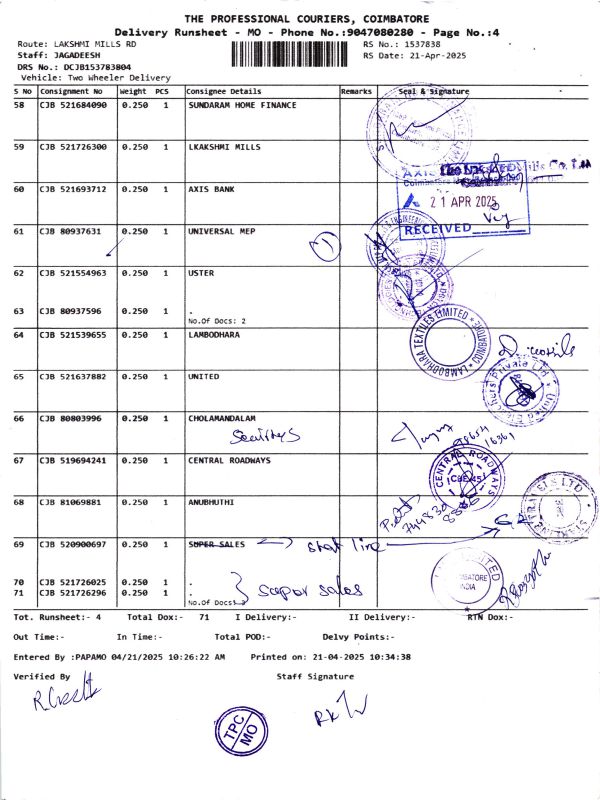 THE PROFESSIONAL COURIERS, COIMBATORE
Delivery Runsheet - MO - Phone No.:9047080280 - Page No.:4
Route: LAKSHMI MILLS RD RS No.: 1537838
Staff: JAGADEESH RS Date: 21-Apr-2025
DRS No.: DCJB153783804
Vehicle: Two Wheeler Delivery
S No Consignment No Weight PCS Consignee Details Remarks Seal & Signature
58 CJB 521684090 0.250 1 SUNDARAM HOME FINANCE
59 CJB 521726300 0.250 1 LKAKSHMI MILLS
60 CJB 521693712 0.250 1 AXIS BANK
AXIS
21 APR 2025
RECEIVED
61 CJB 80937631 0.250 1 UNIVERSAL MEP 1
62 CJB 521554963 0.250 1 USTER
63 CJB 80937596 0.250 1 .
No.Of Docs: 2
64 CJB 521539655 0.250 1 LAMBODHARA
LAMBODHARA TEXTILES LIMITED COIMBATORE
65 CJB 521637882 0.250 1 UNITED
66 CJB 80803996 0.250 1 CHOLAMANDALAM
67 CJB 519694241 0.250 1 CENTRAL ROADWAYS
CENTRAL ROADWAYS
CBE 45
68 CJB 81069881 0.250 1 ANUBHUTHI
69 CJB 520900697 0.250 1 SUPER SALES
70 CJB 521726025 0.250 1 .
71 CJB 521726296 0.250 1 . super sales
No.Of Docs: 3
COIMBATORE
INDIA
Tot. Runsheet:- 4 Total Dox:- 71 I Delivery:- II Delivery:- RTN Dox:-
Out Time:- In Time:- Total POD:- Delvy Points:-
Entered By :PAPAMO 04/21/2025 10:26:22 AM Printed on: 21-04-2025 10:34:38
Verified By Staff Signature
TPC
MO